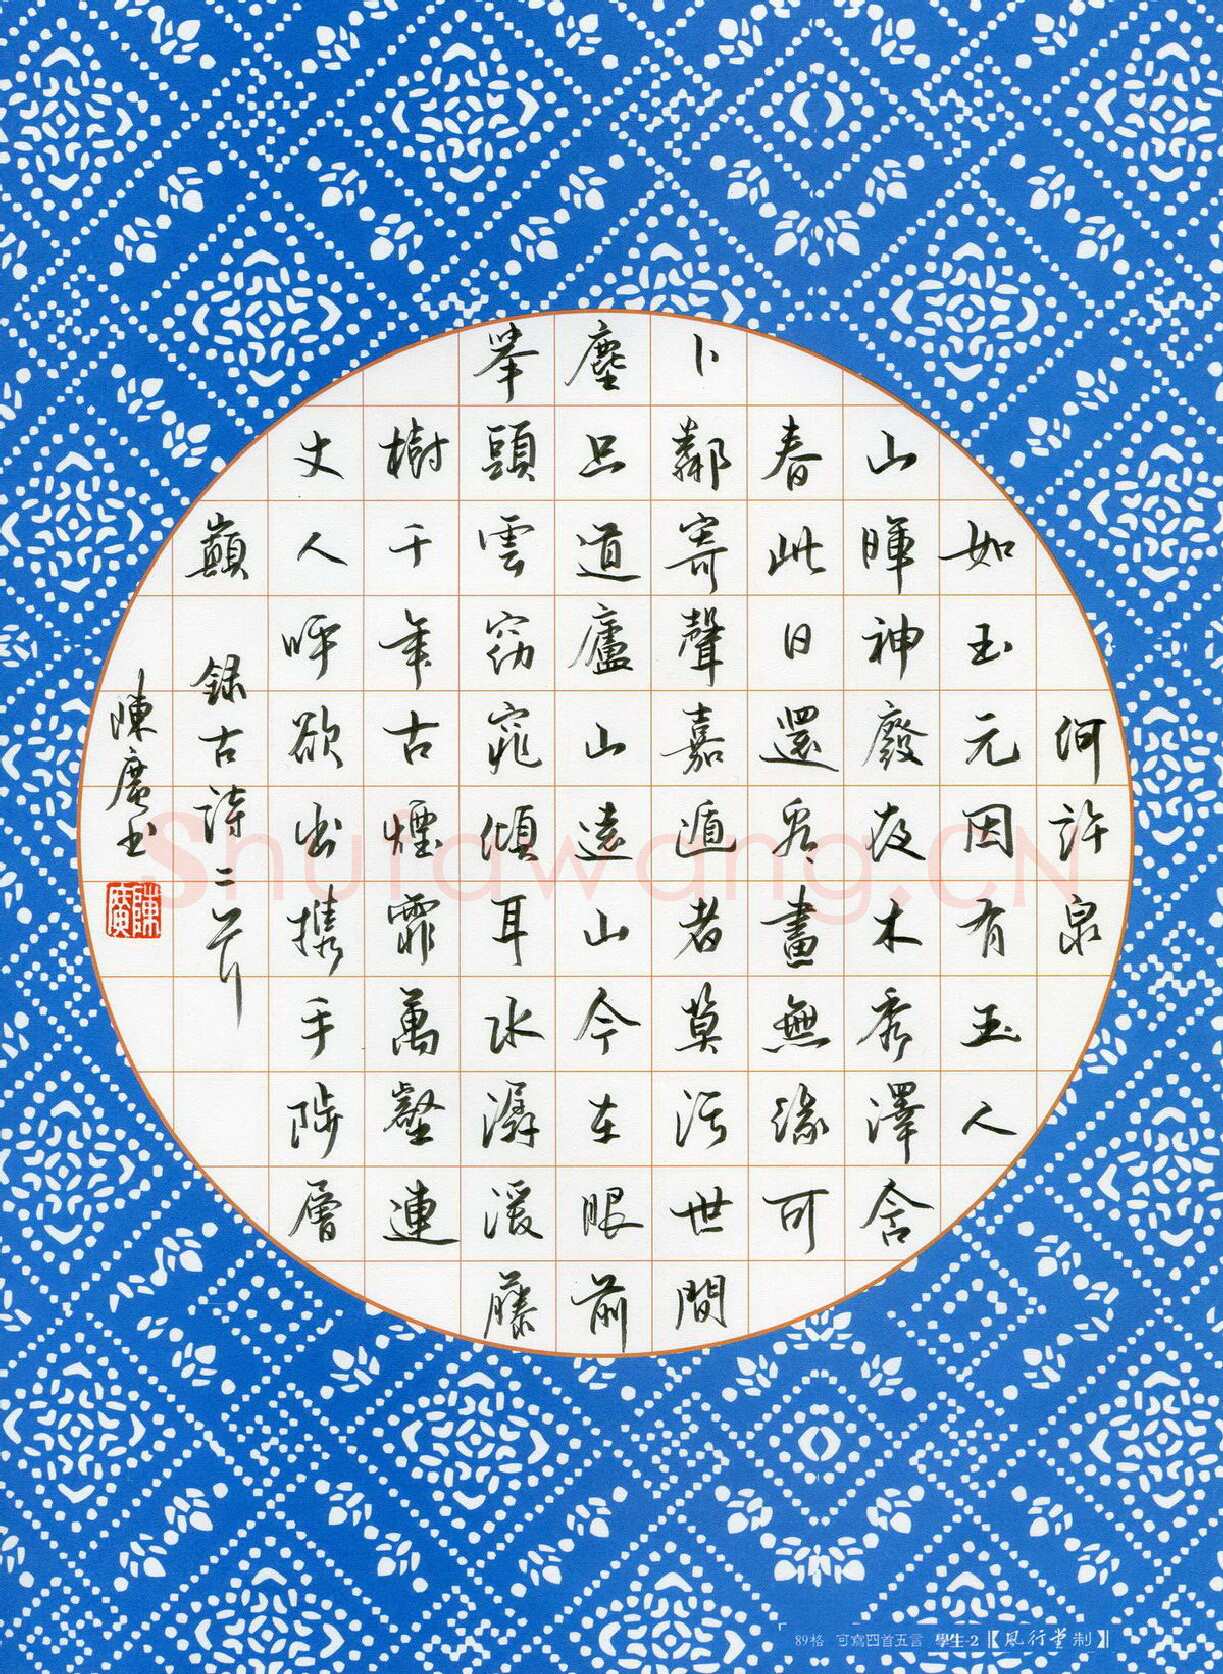 何許泉
如玉元因有玉人
山暉神廢夜木秀澤含
春此日還看畫無緣可
卜鄰寄聲嘉遁者莫污世間
塵只道廬山遠山今在眼前
舉頭雲窈窕傾耳水潺湲藤
樹千年古煙霏萬壑連
丈人呼欲出攜手陟層
巔 錄古詩二首
陳廣書
陳廣
Shufawang.CN
89格 可寫四首五言 學生-2【風行堂制】